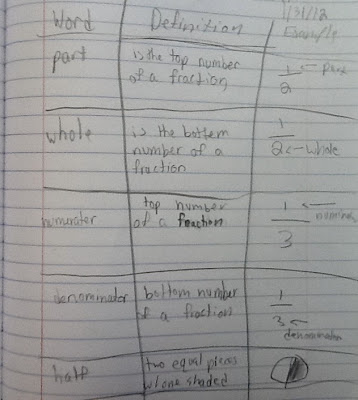 1/31/12
Word Definition Example
part is the top number
of a fraction
1 ← part
2
whole is the bottom
number of a
fraction
1
2 ← whole
numerater top number
of a fraction
1 ←
3
denominator bottom number
of a fraction
1
3 ←
denominator
half two equal pieces
w/one shaded